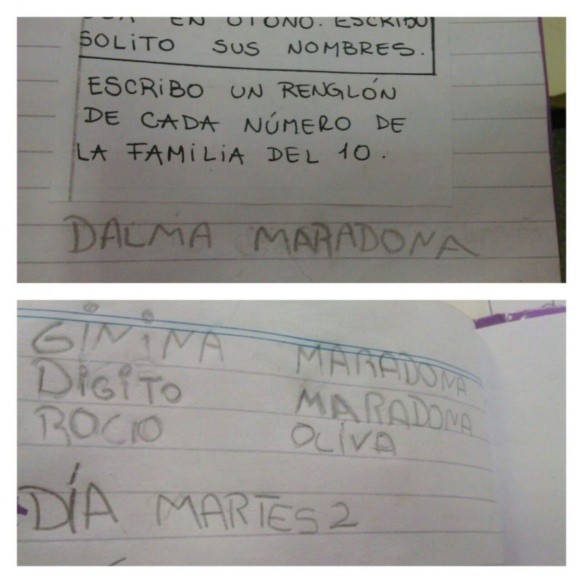 EN OTOÑO. ESCRIBO
SOLITO SUS NOMBRES.
ESCRIBO UN RENGLÓN
DE CADA NÚMERO DE
LA FAMILIA DEL 10.
DALMA MARADONA
GININA MARADONA
DIGITO MARADONA
ROCIO OLIVA
DÍA MARTES 2